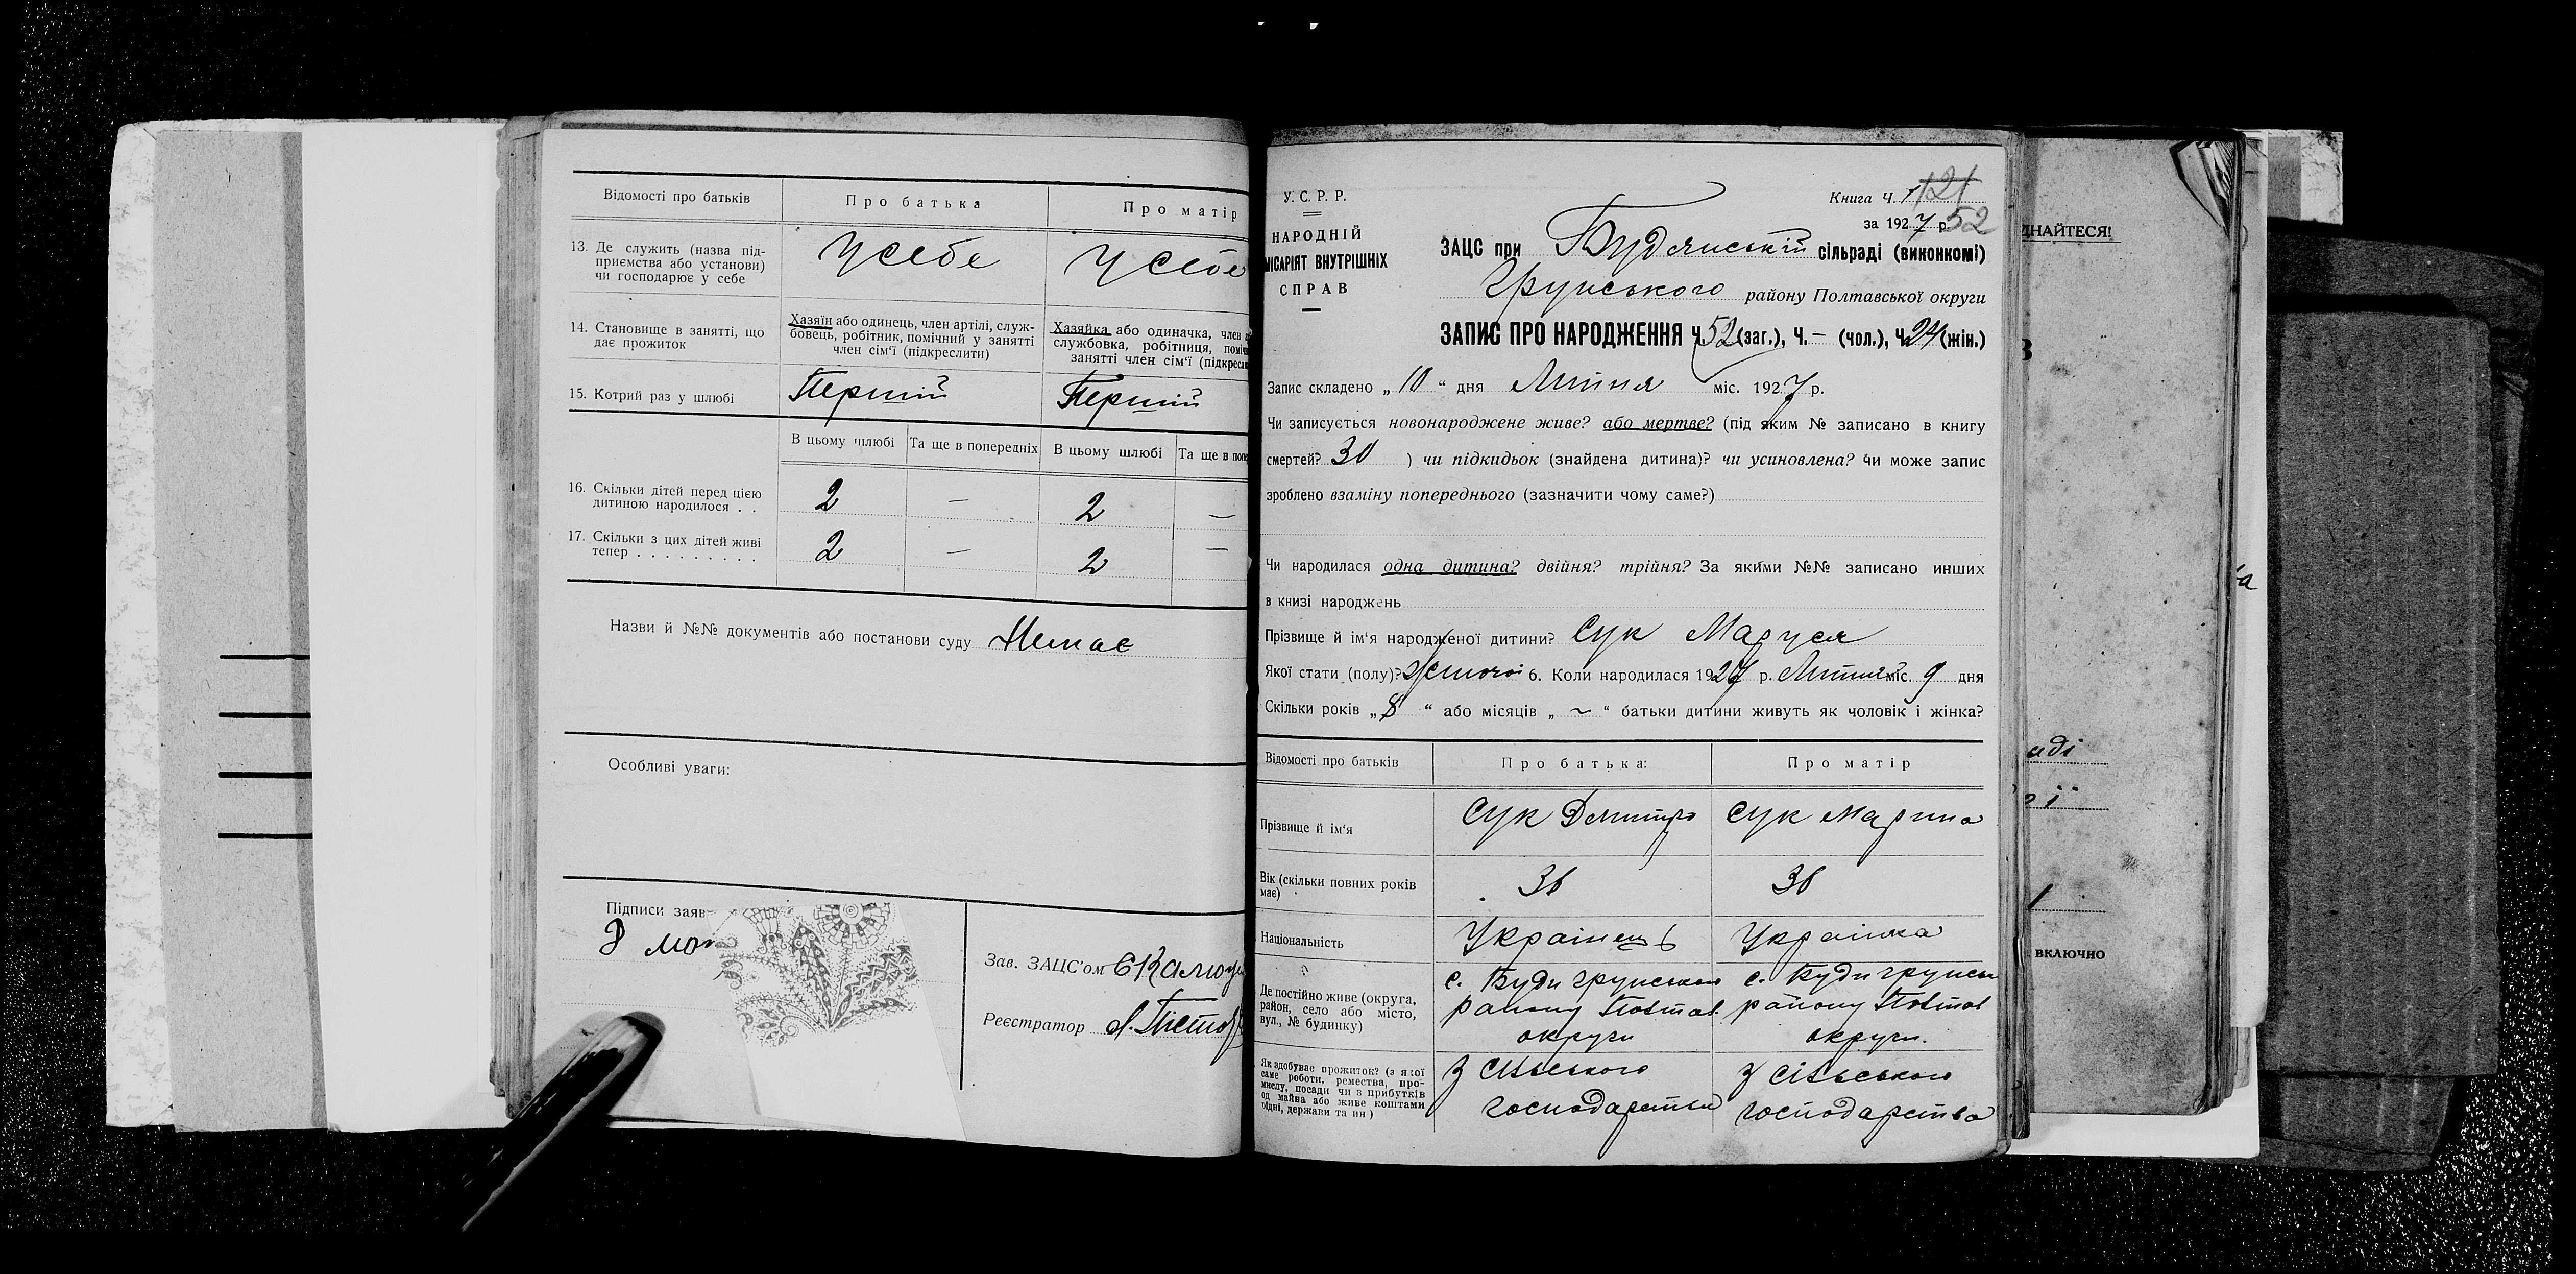 Відомості про батьків
Про батька
Про матір
13. Де служить (назва під-
приємства або установи)
чи господарює у себе
У себе
У себе
14. Становище в занятті, що
дає прожиток
Хазяїн або одинець, член артілі, служ-
бовець, робітник, помічний у занятті
член сім'ї (підкреслити)
Хазяйка або одиначка, член
службовка, робітниця,
занятті член сім'ї
15. Котрий раз у шлюбі
Перший
Перший
В цьому шлюбі
Та ще в попередніх
В цьому шлюбі
Та ще в
16. Скільки дітей перед цією
дитиною народилося . .
2 — 2 —
17. Скільки з цих дітей живі
тепер . . . . . . . . .
2 — 2 —
Назви й №№ документів або постанови суду Немає
Особливі уваги:
Підписи заяв
Зав. ЗАЦС'ом
Реєстратор
У. С. Р. Р.
НАРОДНІЙ
МІСАРІЯТ ВНУТРІШНІХ
СПРАВ
Книга Ч. 1 121
за 1927 р. 52
ЗАЦС при Будянській сільраді (виконкомі)
Грунського району Полтавської округи
ЗАПИС ПРО НАРОДЖЕННЯ Ч. 52 (заг.), Ч. — (чол.), Ч. 24 (жін.)
Запис складено „ 10 " дня Липня міс. 1927 р.
Чи записується новонароджене живе? або мертве? (під яким № записано в книгу
смертей? 30 ) чи підкидьок (знайдена дитина)? чи усиновлена? чи може запис
зроблено взаміну попереднього (зазначити чому саме?)
Чи народилася одна дитина? двійня? трійня? За якими №№ записано инших
в книзі народжень
Прізвище й ім'я народженої дитини? Сук Маруся
Якої стати (полу)? Жіночої 6. Коли народилася 1927 р. Липня міс. 9 дня
Скільки років „ 8 " або місяців „ ~ " батьки дитини живуть як чоловік і жінка?
Відомості про батьків
Про батька:
Про матір
Прізвище й ім'я
Сук Дмитро
Сук Марина
Вік (скільки повних років
має)
36
Національність
Українець
Українка
Де постійно живе (округа,
район, село або місто,
вул., № будинку)
с. Буди Грунського
району Полтав.
округи
с. Буди Грунськ
району Полтав
округи.
Як здобуває прожиток? (з якої
саме роботи, ремества, про-
мислу, посади чи з прибутків
од майва або живе коштами
рідні, держави та ин)
З сільського
господарства
З сільського
господарства
ДНАЙТЕСЯ!
аді
ої
ВКЛЮЧНО